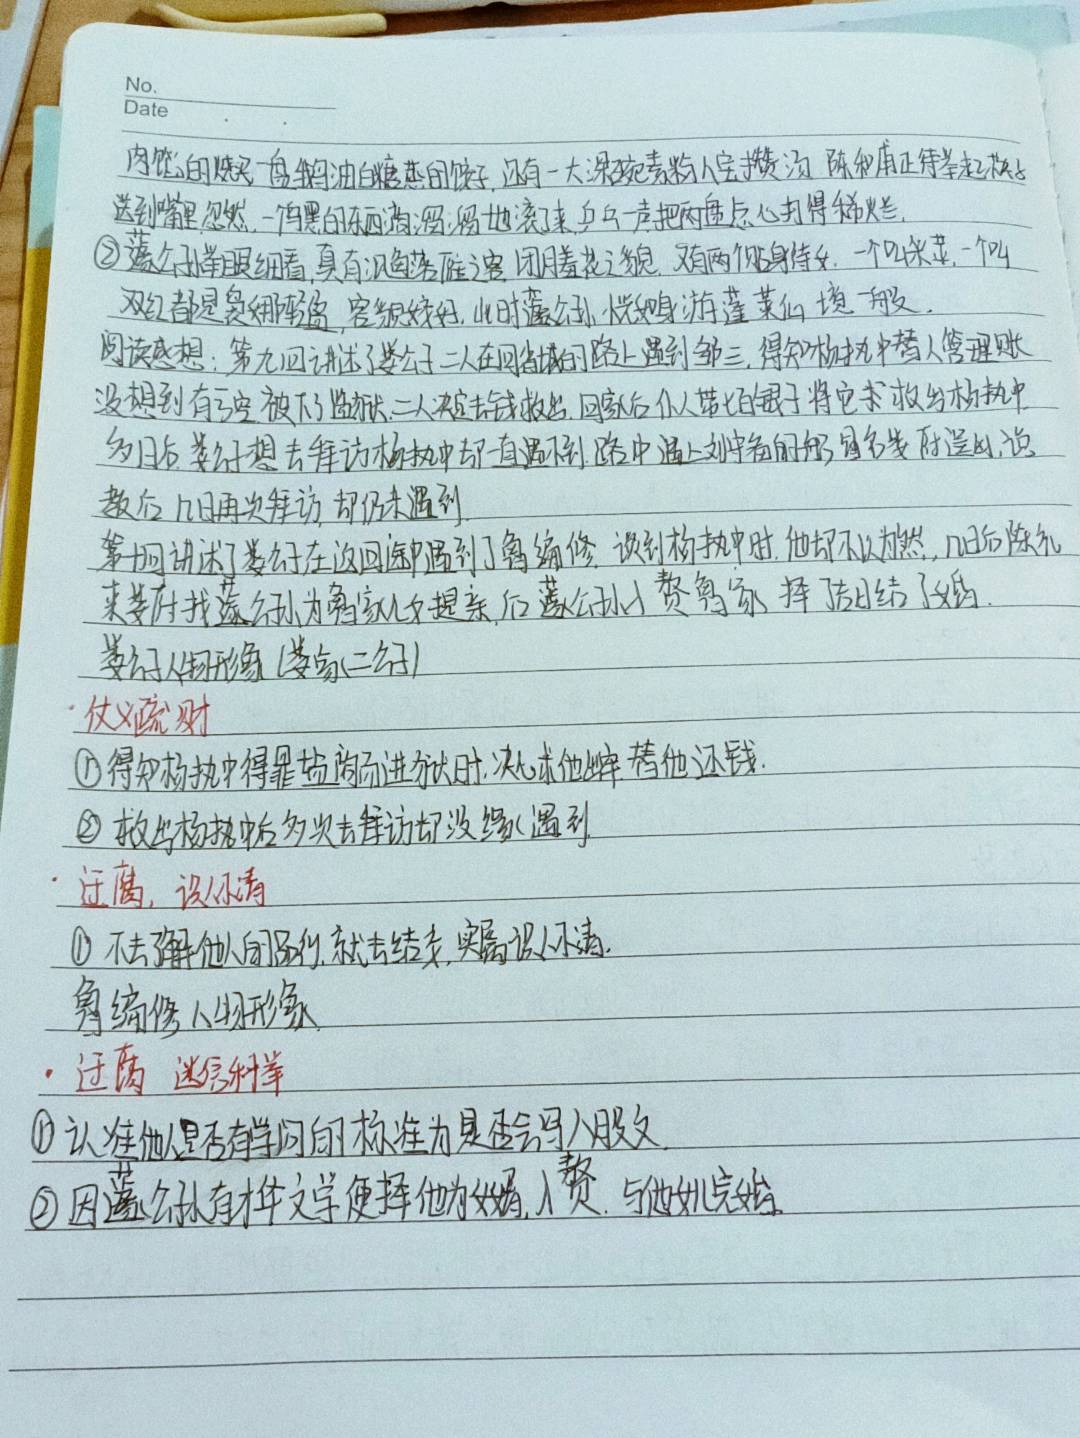 No.
Date
肉馅的烧卖一盘鹅油白糖蒸的饺子,还有一大深碗素粉八宝攒汤 陈和甫正待举起箸
送到嘴里忽然,一个乌黑的东西溜溜地滚了来,乒乓一声把两盘点心打得稀烂.
②蘧公孙举眼细看,真有沉鱼落雁之容 闭月羞花之貌,又有两个贴身侍女,一个叫采苹,一个叫
双红都是袅娜轻盈,容貌 此时蘧公孙,恍如身游蓬莱仙境一般.
阅读感想:第九回讲述了娄公子二人在回省城的路上遇到邹三,得知杨执中替人管理账
没想到有亏空 被下了监狱,二人决定去钱救出,回家后仆人带七百银子将它求救出杨执中
多日后 娄公子想去拜访杨执中却一直遇不到,路中遇上刘守备的船冒名娄府逞凶,说
教后 几日再次拜访,却仍未遇到.
第十回讲述了娄公子在返回途中遇到了鲁编修,谈到杨执中时,他却不以为然,几日后陈礼
来娄府找蘧公孙为鲁家儿女提亲,后蘧公孙入赘鲁家 择了吉日结了婚.
娄公子人物形象(娄家二公子)
·仗义疏财
①得知杨执中得罪盐商而进狱时,决心求他出牢 替他还钱.
②救出杨执中后多次去拜访却没缘遇到.
·迂腐,识人不清
①不去了解他人的品行,就去结交,实属识人不清.
鲁编修人物形象.
·迂腐 迷信科举
①认准他人是否有学问的标准为是否会写八股文.
②因蘧公孙有才华文学便择他为女婿,入赘,与他女儿完婚.